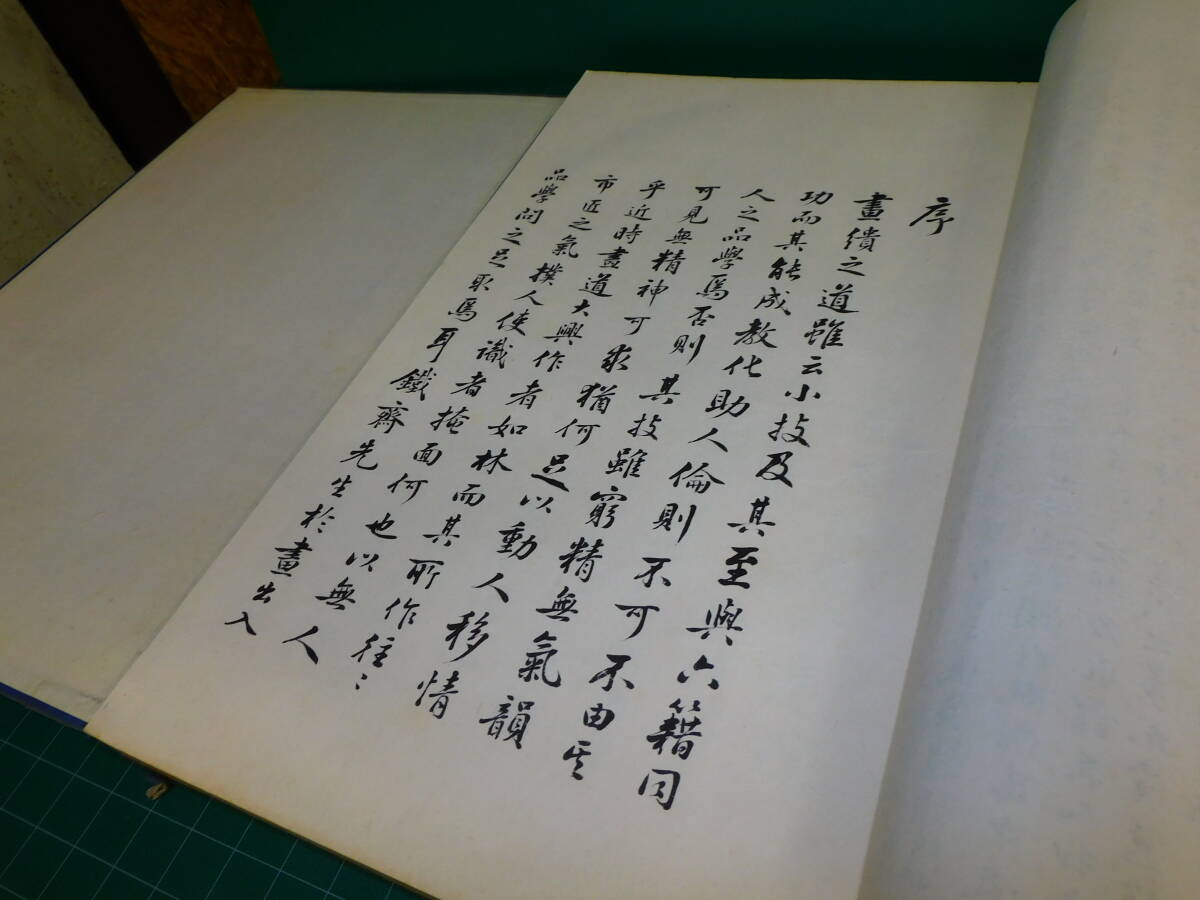 序
畫繢之道雖云小技及其至與六籍同
功而其能成教化助人倫則不可不由其
人之品學焉否則其技雖窮精無氣韻
可見無精神可求猶何足以動人移情
乎近時畫道大興作者如林而其所作往〻
市匠之氣撲人使識者掩面何也以無人
品學問之足取焉耳鐵齋先生於畫出入